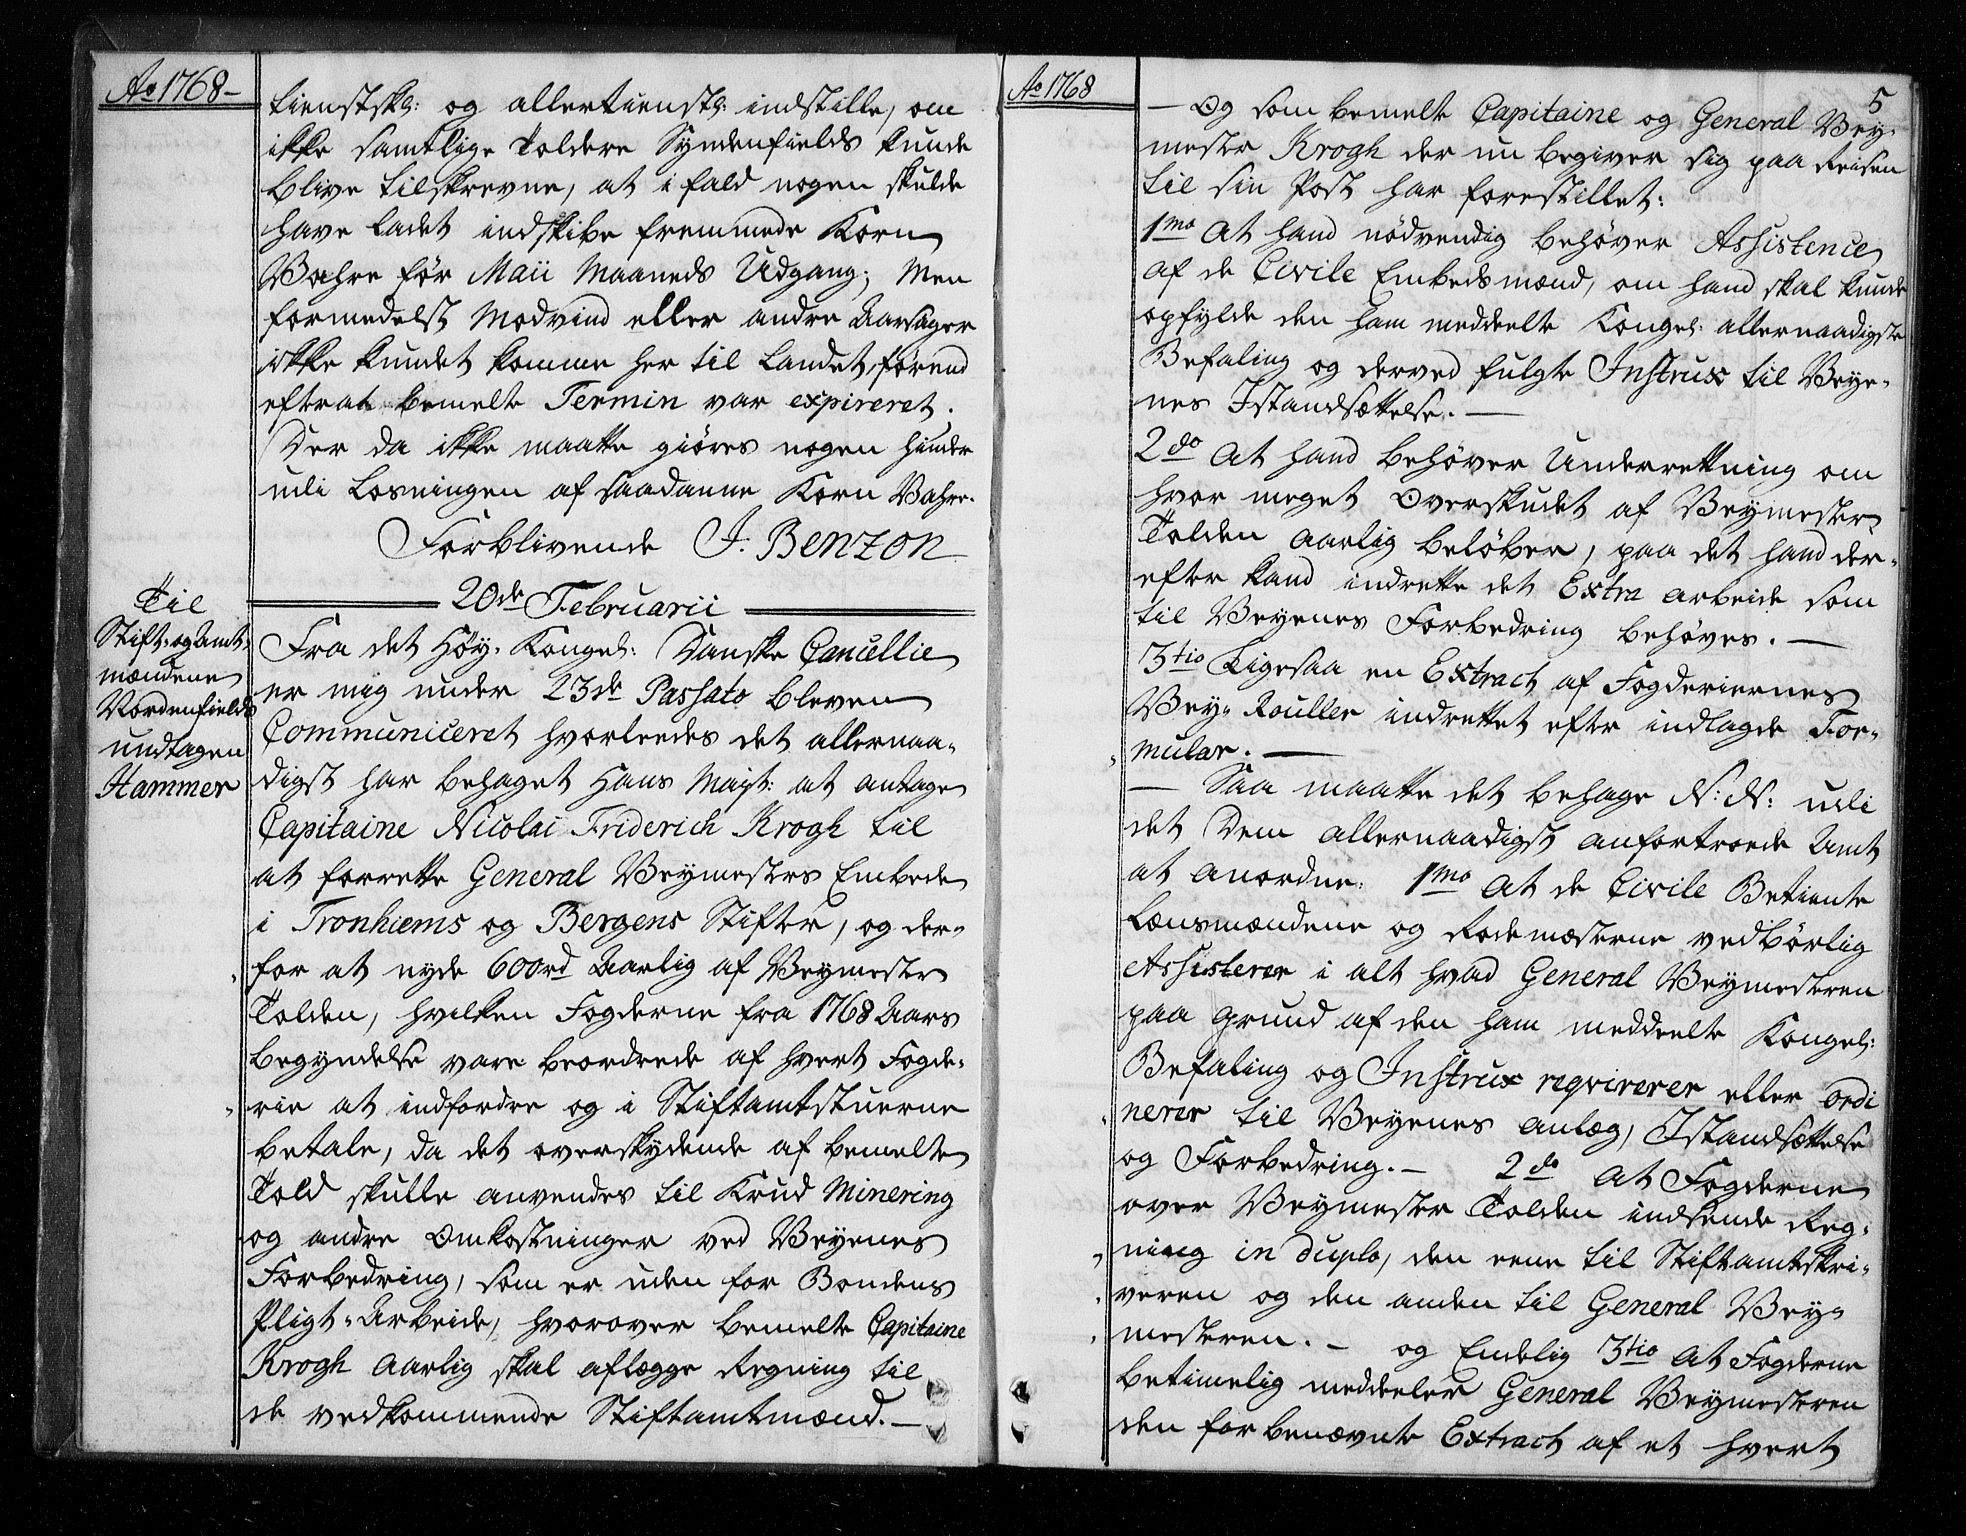 Ao 1768-
tienstskl: og allertienstl: indstille, om
ikke samtlige Toldere Syndenfields kunde
blive tilskrevne, at i fald nogen skulde
have ladet indskibe fremmede Korn
Vahre før Maii Maaneds Udgang; Men
formedelst Modvind eller andre Aarsager
ikke kundet komme her til Landet, førend
efterat bemelte Termin var expireret.
Der da ikke maatte giøres nogen hinder
udi Losningen af saadanne Korn Vahre.
Forblivende J. Benzon
20de Februarii
Til
Stift- og Amt-
mændene
Nordenfields
undtagen
Hammer
Fra det Høy-Kongel: Danske Cancellie
er mig under 23de Passato bleven
Communiceret hvorleedes det allernaa-
digst har behaget Hans Mayt: at antage
Capitaine Nicolai Friderich Krogh til
at forrette General Veymesters Embede
i Tronhiems og Bergens Stifter, og der-
for at nyde 600rd Aarlig af Veymester
Tolden, hvilken Fogderne fra 1768 Aars
begyndelse vare beordrede af hvert Fogde-
rie at indfordre og i Stiftamtstuerne
betale, da det overskydende af bemelte
Told skulle anvendes til Krud Minering
og andre Omkostninger ved Veyenes
Forbedring, som er uden for Bondens
Pligt-Arbeide, hvorover bemelte Capitaine
Krogh Aarlig skal aflægge Regning til
de vedkommende Stiftamtmænd.-
Ao 1768
5
- Og som bemelte Capitaine og General Vey-
mester Krogh der nu begiver sig paa Reisen
til sin Post har forestillet:
1mo At hand nødvendig behøver Assistence
af de Civile Embedsmænd, om hand skal kunde
opfylde den ham meddeelte Kongel: allernaadigste
Befaling og derved fulgte Instrux til Veye-
nes Istandsættelse. -
2do At hand behøver Underrettning om
hvor meget Overskudet af Veymester
Tolden aarlig beløber, paa det hand der-
efter kand indrette det Extra arbeide som
til Veyenes Forbedring behøves. -
3tio Ligesaa en Extract af Fogderiernes
Vey-Rouller indrettet efter indlagde For-
mular. -
- Saa maatte det behage N: N: udi
det Dem allernaadigst anfortroede Amt
at anordne: 1mo At de Civile Betiente
Lænsmændene og Rodemæsterne vedbørlig
Assisterer i alt hvad General Veymesteren
paa grund af den ham meddeelte Kongel:
Befaling og Instrux reqvirerer eller ordi
nerer til Veyenes anlæg, Istandsættelse
og Forbedring.- 2do At Fogderne
over Veymester Tolden indsende Reg-
ning in duplo, den eene til Stiftamtskri-
veren og den anden til General Vey-
mesteren. - og Endelig 3tio At Fogderne
betimelig meddeeler General Veymesteren
den forbenævnte Extract af et hvert